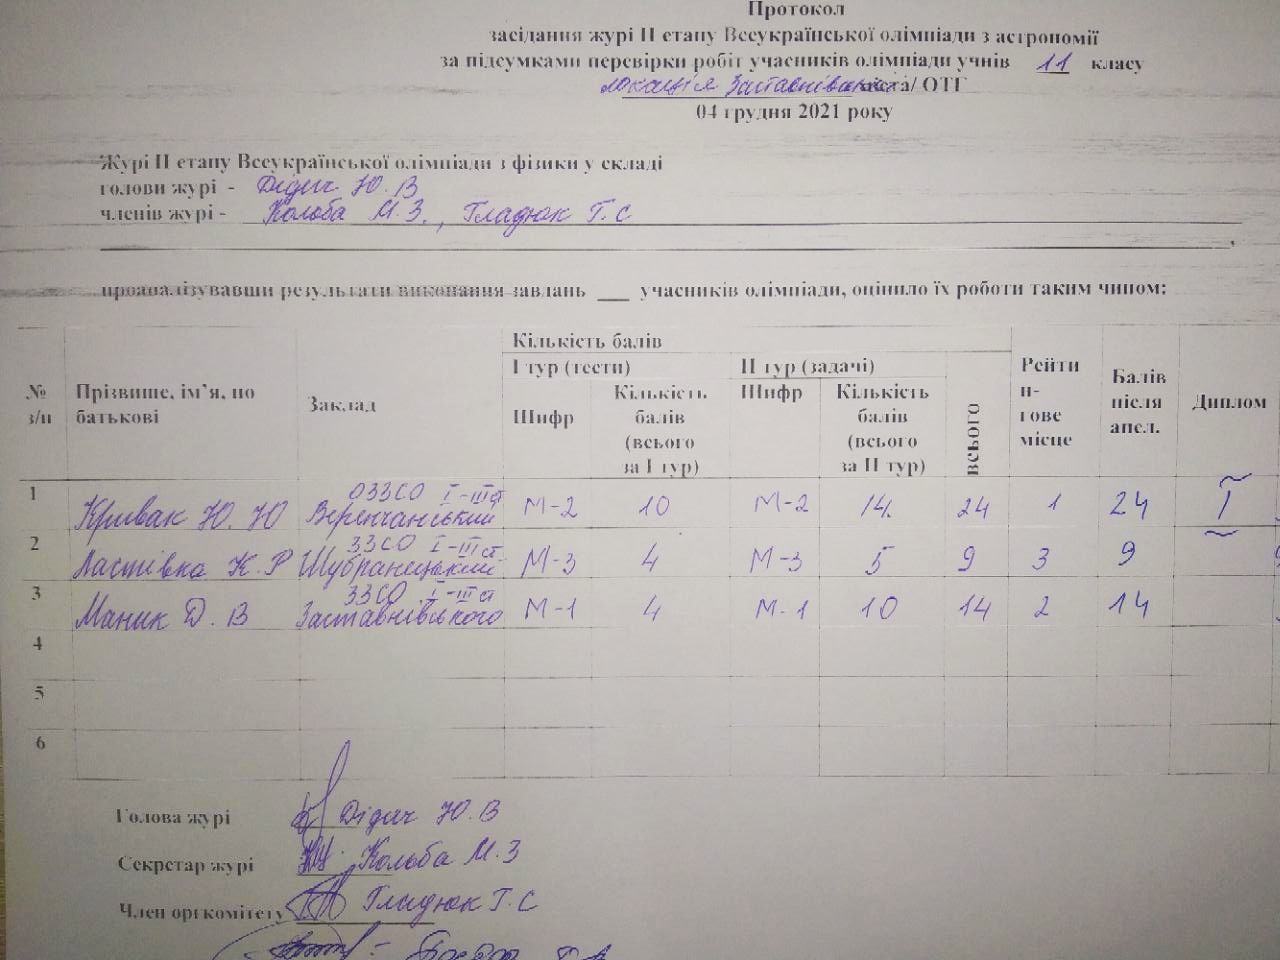 Протокол
засідання журі ІІ етапу Всеукраїнської олімпіади з астрономії
за підсумками перевірки робіт учасників олімпіади учнів 11 класу
локація Заставнівська міста/ ОТГ
04 грудня 2021 року
Журі ІІ етапу Всеукраїнської олімпіади з фізики у складі
голови журі - Дідич Ю. В
членів журі - Колоба М. З., Гладюк Г. С
проаналізувавши результати виконання завдань ___ учасників олімпіади, оцінило їх роботи таким чином:
№ з/п Прізвище, ім’я, по батькові Заклад Кількість балів Рейтин-гове місце Балів після апел. Диплом
І тур (тести) ІІ тур (задачі) всього
Шифр Кількість балів (всього за І тур) Шифр Кількість балів (всього за ІІ тур)
1 Кривак Ю. Ю ОЗЗСО І-ІІІ ст Веренчанський М-2 10 М-2 14 24 1 24 І
2 Ластівка К. Р ЗЗСО І-ІІІ ст Шубранецький М-3 4 М-3 5 9 3 9
3 Маник Д. В ЗЗСО І-ІІІ ст Заставнівського М-1 4 М-1 10 14 2 14
4
5
6
Голова журі Дідич Ю. В
Секретар журі Колоба М. З
Член оргкомітету Гладюк Г. С